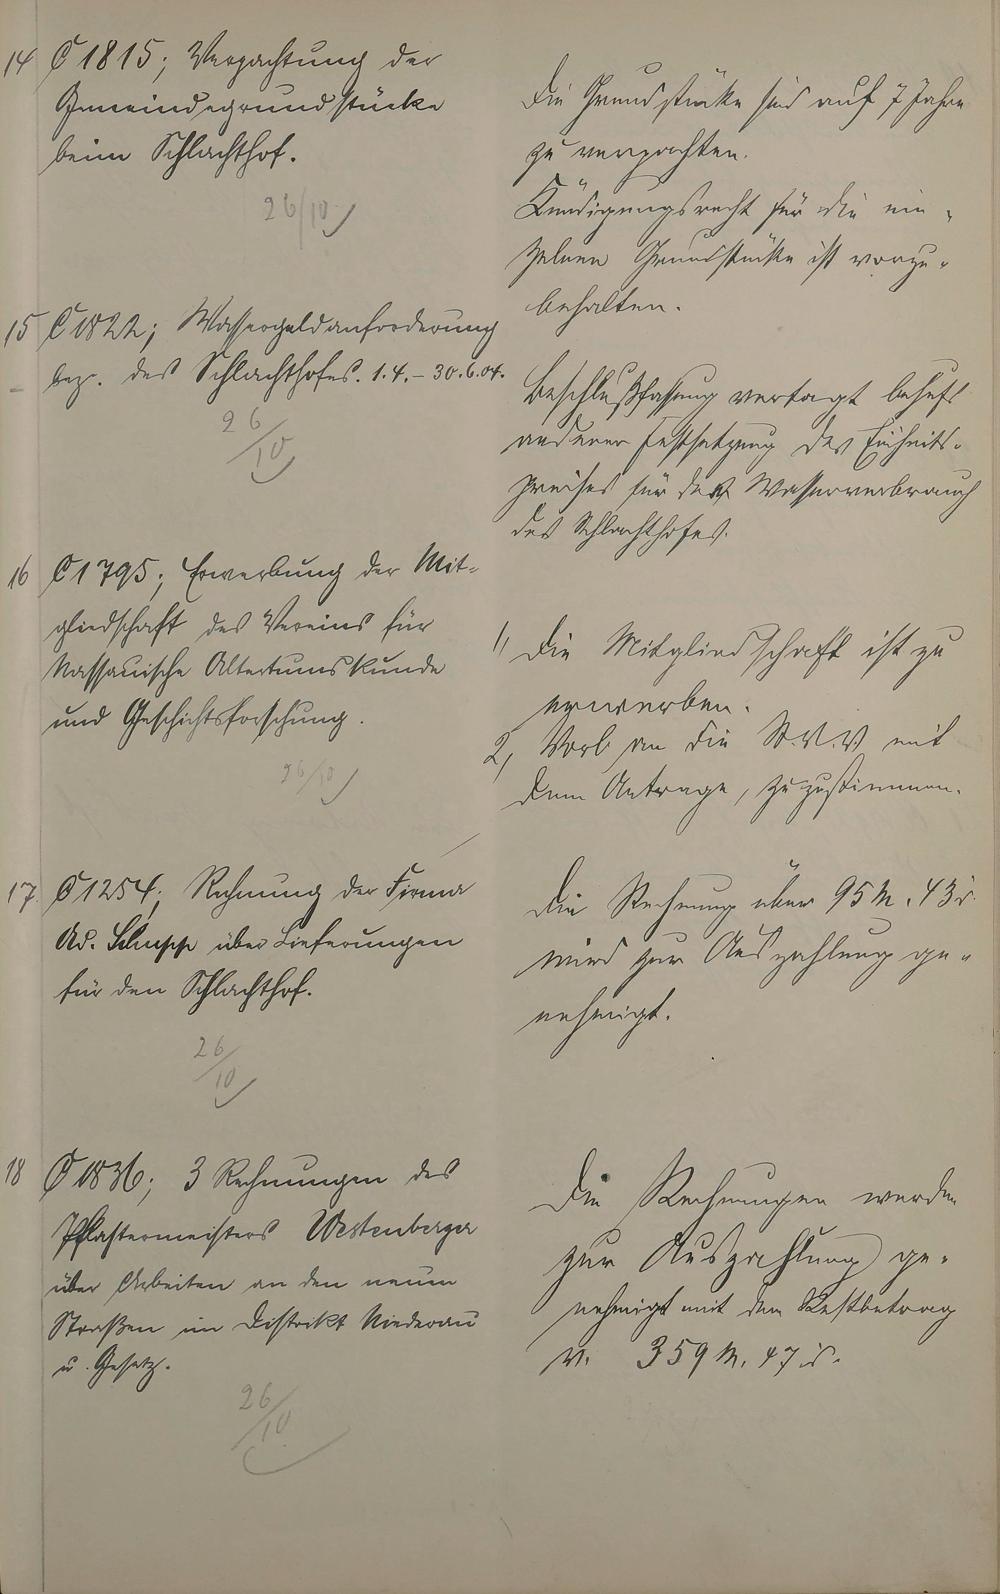 14 C 1815; Verpachtung der
Gemeindegrundstücke
beim Schlachthof.
26/10
Die Grundstücke sind auf 7 Jahre
zu verpachten.
Kündigungsrecht für die ein-
zelnen Grundstücke ist vorzu-
behalten.
15 C 1822; Wassergeldanforderung
bez. des Schlachthofes. 1.4.–30.6.04.
26/10
Beschlußfassung vertagt behufs
anderer Festsetzung des Einheits-
preises für den Wasserverbrauch
des Schlachthofes.
16 C 1795; Erwerbung der Mit-
gliedschaft des Vereins für
Nassauische Altertumskunde
und Geschichtsforschung.
26/10
1, Die Mitgliedschaft ist zu
erwerben.
2, Vorl. an die St.V.V. mit
dem Antrage, zuzustimmen.
17. C 1254; Rechnung der Firma
Ad. Schupp über Lieferungen
für den Schlachthof.
26/10
Die Rechnung über 95 M. 43 ₰.
wird zur Auszahlung ge-
nehmigt.
18 C 1836; 3 Rechnungen des
Pflastermeisters Westenberger
über Arbeiten an den neuen
Straßen im Distrikt Niederau
u. Gesetz.
26/10
Die Rechnungen werden
zur Auszahlung ge-
nehmigt mit dem Restbetrag
v. 359 M. 47 ₰.